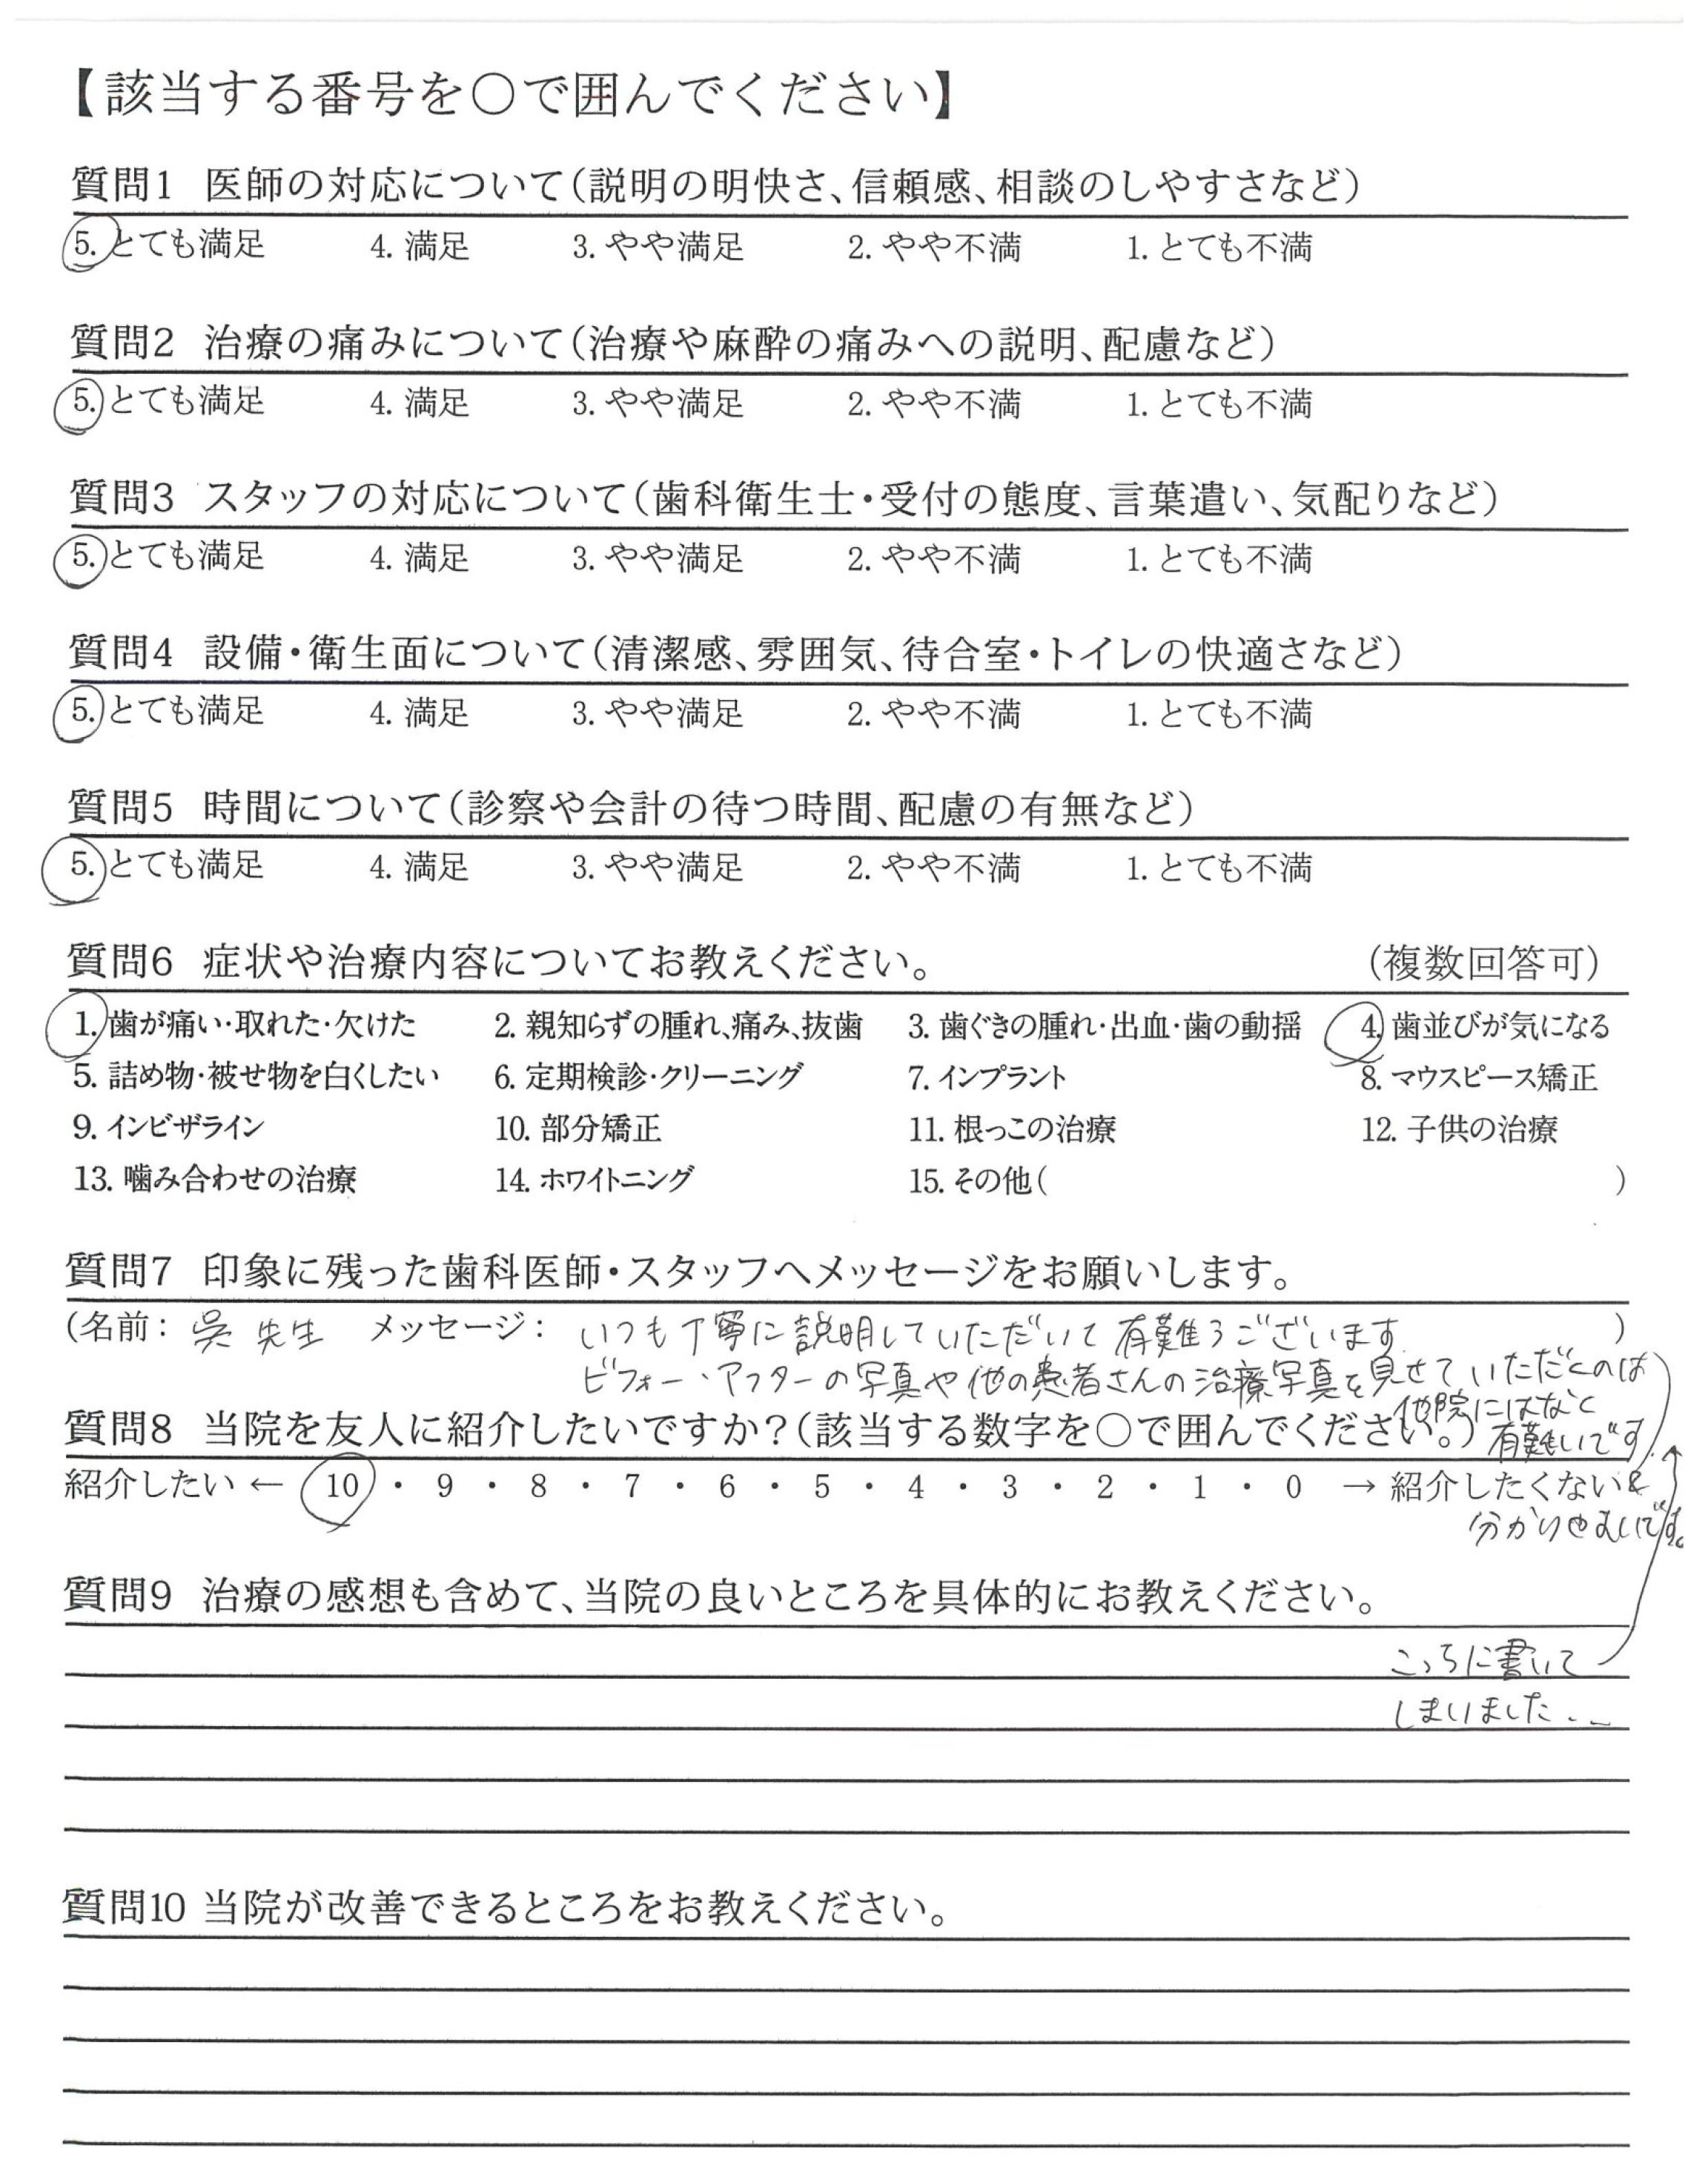 【該当する番号を○で囲んでください】
質問1 医師の対応について(説明の明快さ、信頼感、相談のしやすさなど)
5. とても満足 4. 満足 3. やや満足 2. やや不満 1. とても不満
質問2 治療の痛みについて(治療や麻酔の痛みへの説明、配慮など)
5. とても満足 4. 満足 3. やや満足 2. やや不満 1. とても不満
質問3 スタッフの対応について(歯科衛生士・受付の態度、言葉遣い、気配りなど)
5. とても満足 4. 満足 3. やや満足 2. やや不満 1. とても不満
質問4 設備・衛生面について(清潔感、雰囲気、待合室・トイレの快適さなど)
5. とても満足 4. 満足 3. やや満足 2. やや不満 1. とても不満
質問5 時間について(診察や会計の待つ時間、配慮の有無など)
5. とても満足 4. 満足 3. やや満足 2. やや不満 1. とても不満
質問6 症状や治療内容についてお教えください。 (複数回答可)
1. 歯が痛い・取れた・欠けた 2. 親知らずの腫れ、痛み、抜歯 3. 歯ぐきの腫れ・出血・歯の動揺 4. 歯並びが気になる
5. 詰め物・被せ物を白くしたい 6. 定期検診・クリーニング 7. インプラント 8. マウスピース矯正
9. インビザライン 10. 部分矯正 11. 根っこの治療 12. 子供の治療
13. 噛み合わせの治療 14. ホワイトニング 15. その他( )
質問7 印象に残った歯科医師・スタッフへメッセージをお願いします。
(名前: 呉 先生 メッセージ: いつも丁寧に説明していただいて有難うございます )
ビフォー・アフターの写真や他の患者さんの治療写真を見せていただくのは
他院にはなく
質問8 当院を友人に紹介したいですか?(該当する数字を○で囲んでください。) 有難いです
紹介したい ← 10 ・ 9 ・ 8 ・ 7 ・ 6 ・ 5 ・ 4 ・ 3 ・ 2 ・ 1 ・ 0 → 紹介したくない &
分かりやすいです。
質問9 治療の感想も含めて、当院の良いところを具体的にお教えください。
こっちに書いて
しまいました...
質問10 当院が改善できるところをお教えください。